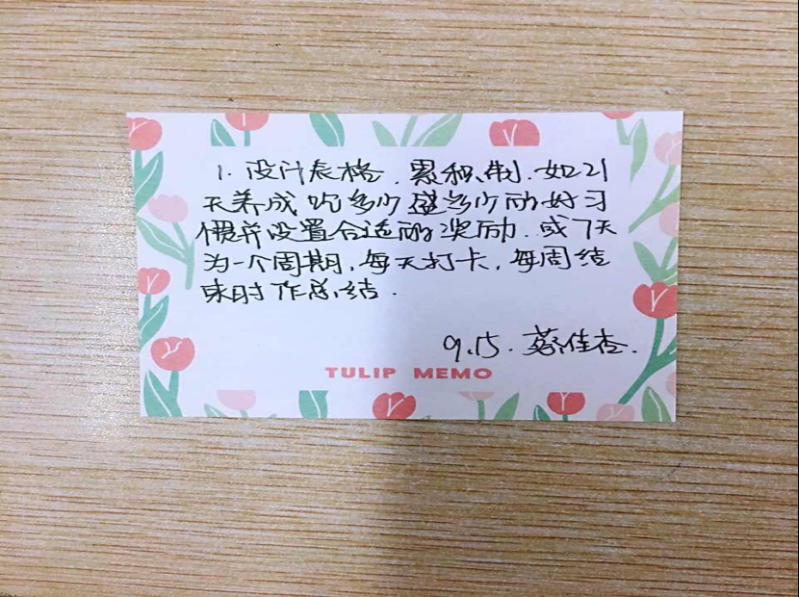 1. 设计表格，累积制. 如21
天养成吃多少盛多少的好习
惯并设置合适的奖励. 或7天
为一个周期，每天打卡，每周结
束时作总结.
9.15. 蔡佳杏.
TULIP MEMO